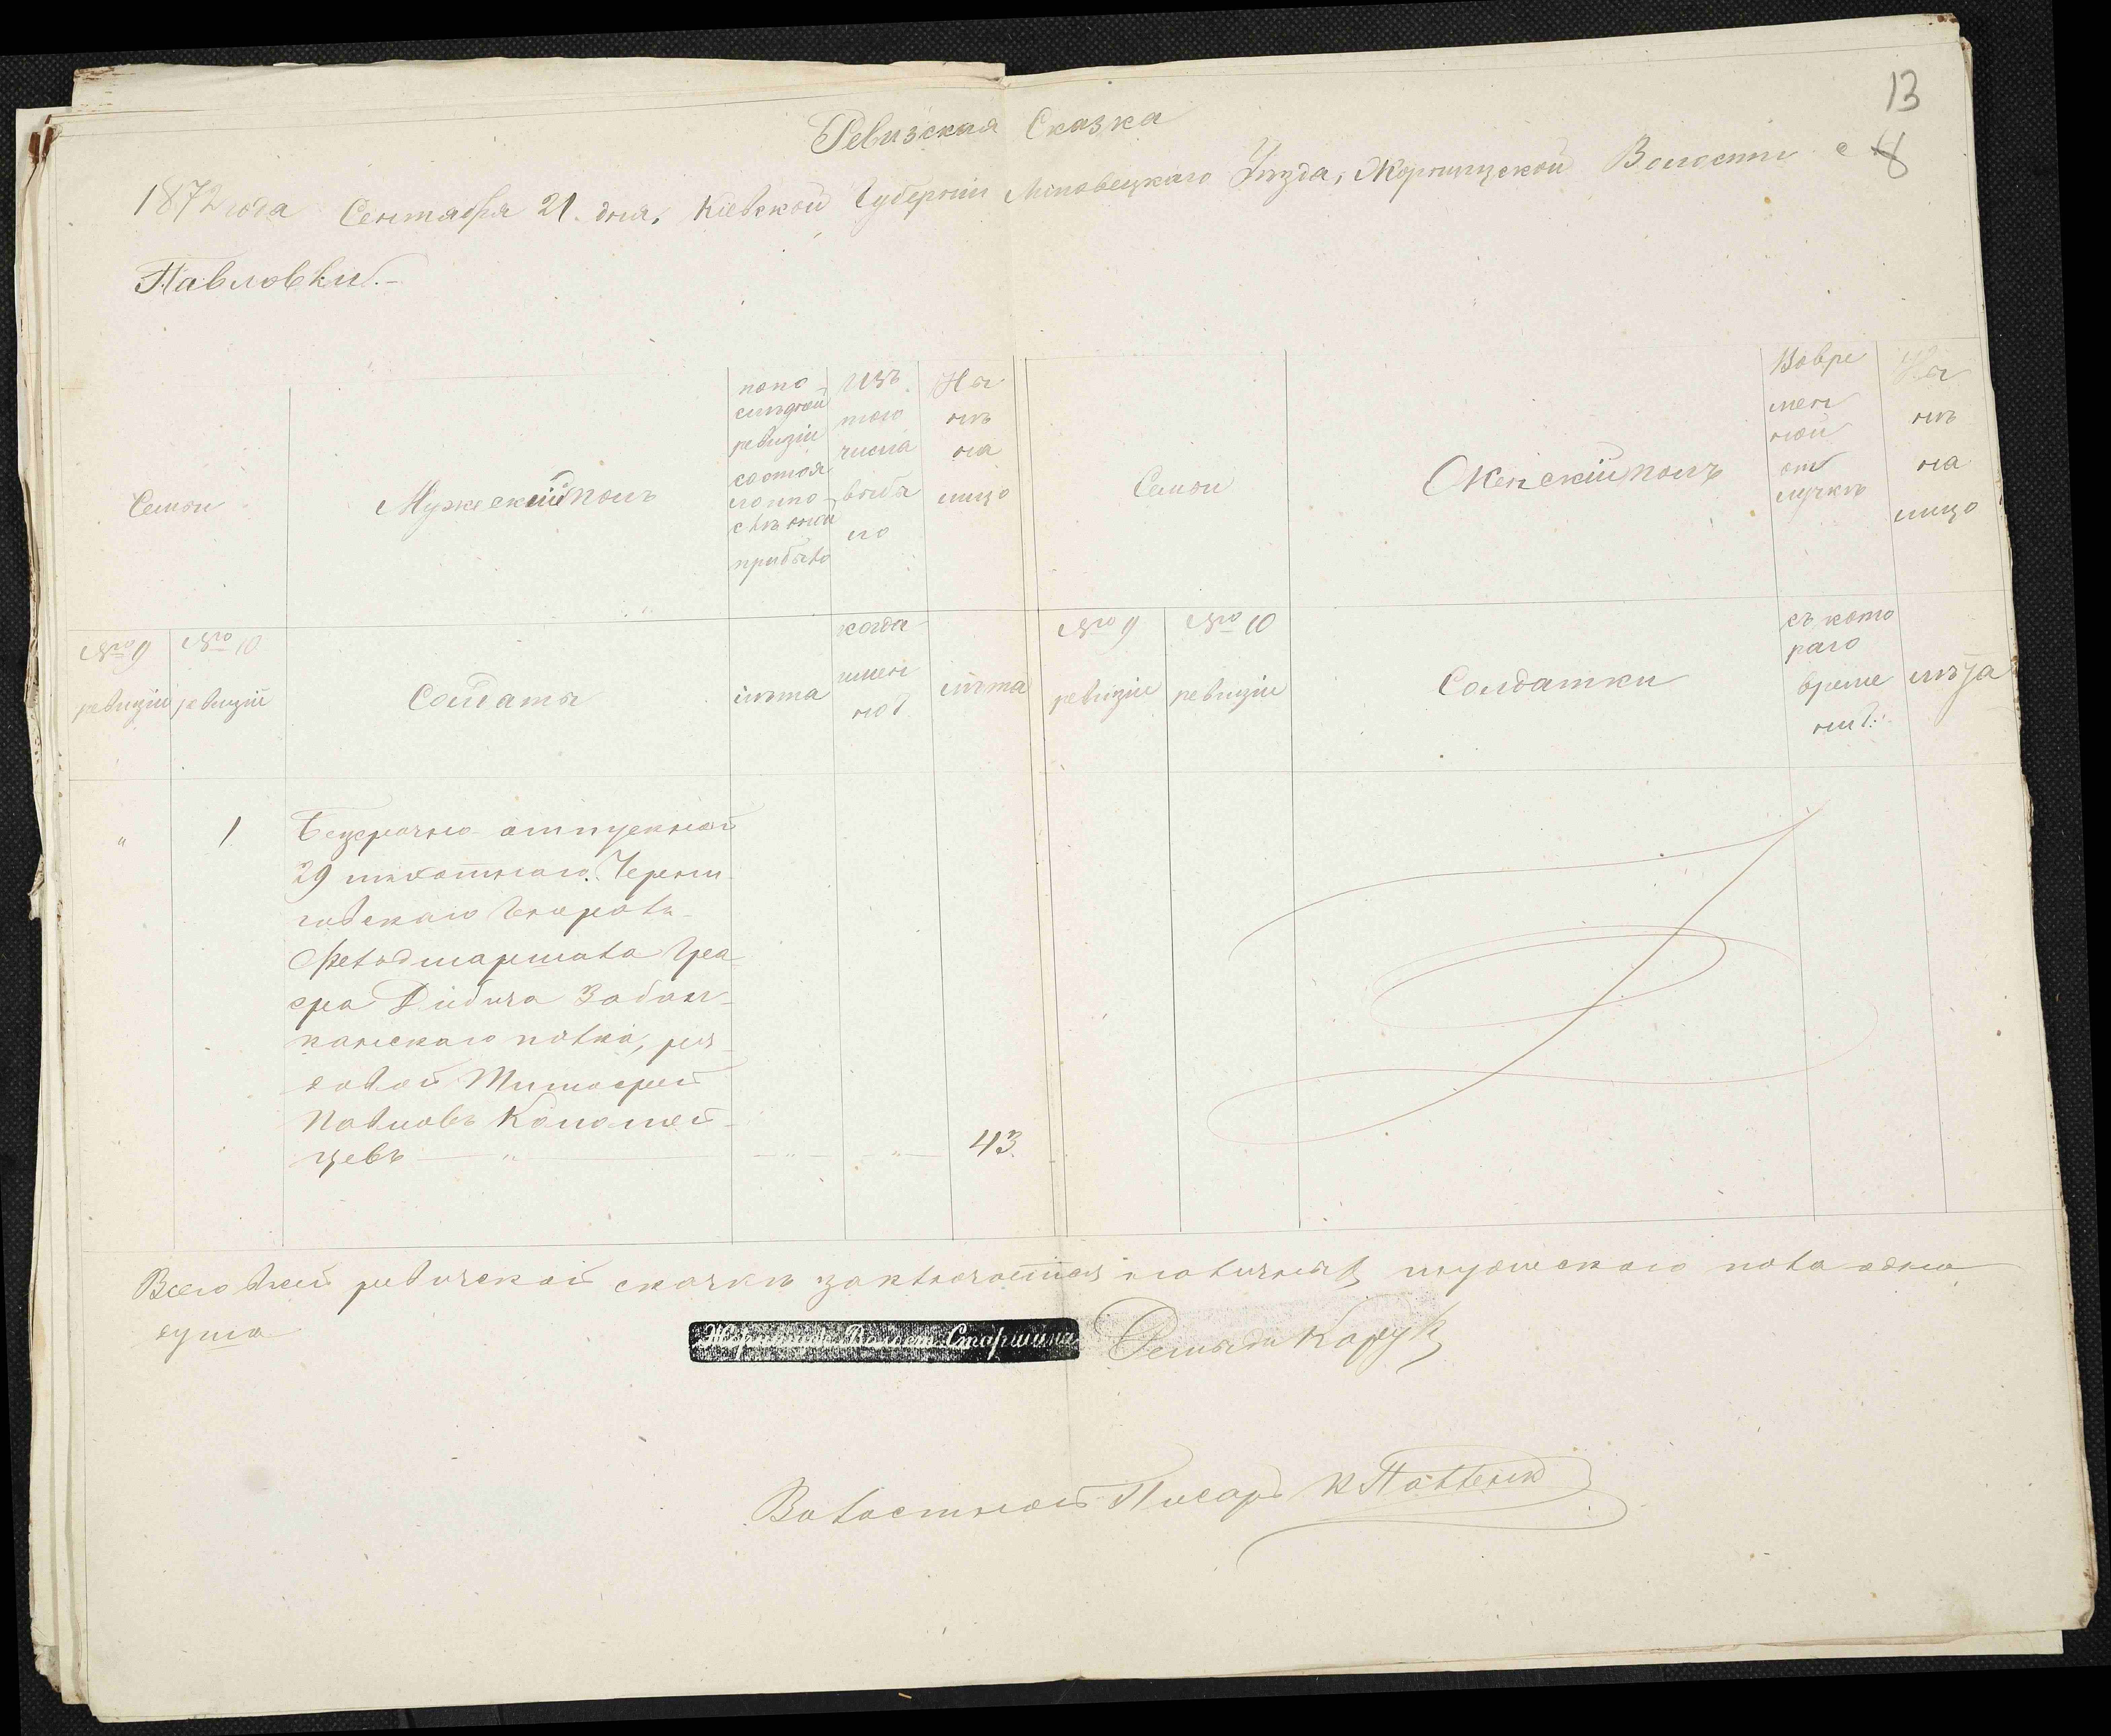 13
8
Ревизская Сказка
1872 года Сентября 21. дня, Кіевской Губерніи Липовецкаго Уезда, Жорнищской Волости с
Павловки.-
Семьи
Мужескій полъ
по по-
следней
ревизіи
состоя
ло и по
с лъ оной
прибыло
Изъ
того
числа
выбы
ло
На
ли
на
лицо
Семьи
Женскій полъ
Вовре
мен
ной
от
лучкѣ
На
лицо
№ 9
ревизіи
№ 10
ревизіи
Солдаты
лѣта
когда
имен
но
лѣта
№ 9
ревизіи
№ 10
ревизіи
Солдатки
съ кото
раго
време
ни
лѣта
"
1
Безсрочно отпускной
29 пѣхотнаго Черни
говскаго Генералъ-
Фельдмаршала Гра
фа Дибича Забал-
канскаго полка, ря-
довой Тимофей
Павловъ Коломей-
цевъ — " — " — " — 43.
Всего въ сей ревизской сказкѣ заключается наличныхъ мужескаго пола одна
душа
Жорнищск. Волост. Старшина
Карук
Волостной Писарь